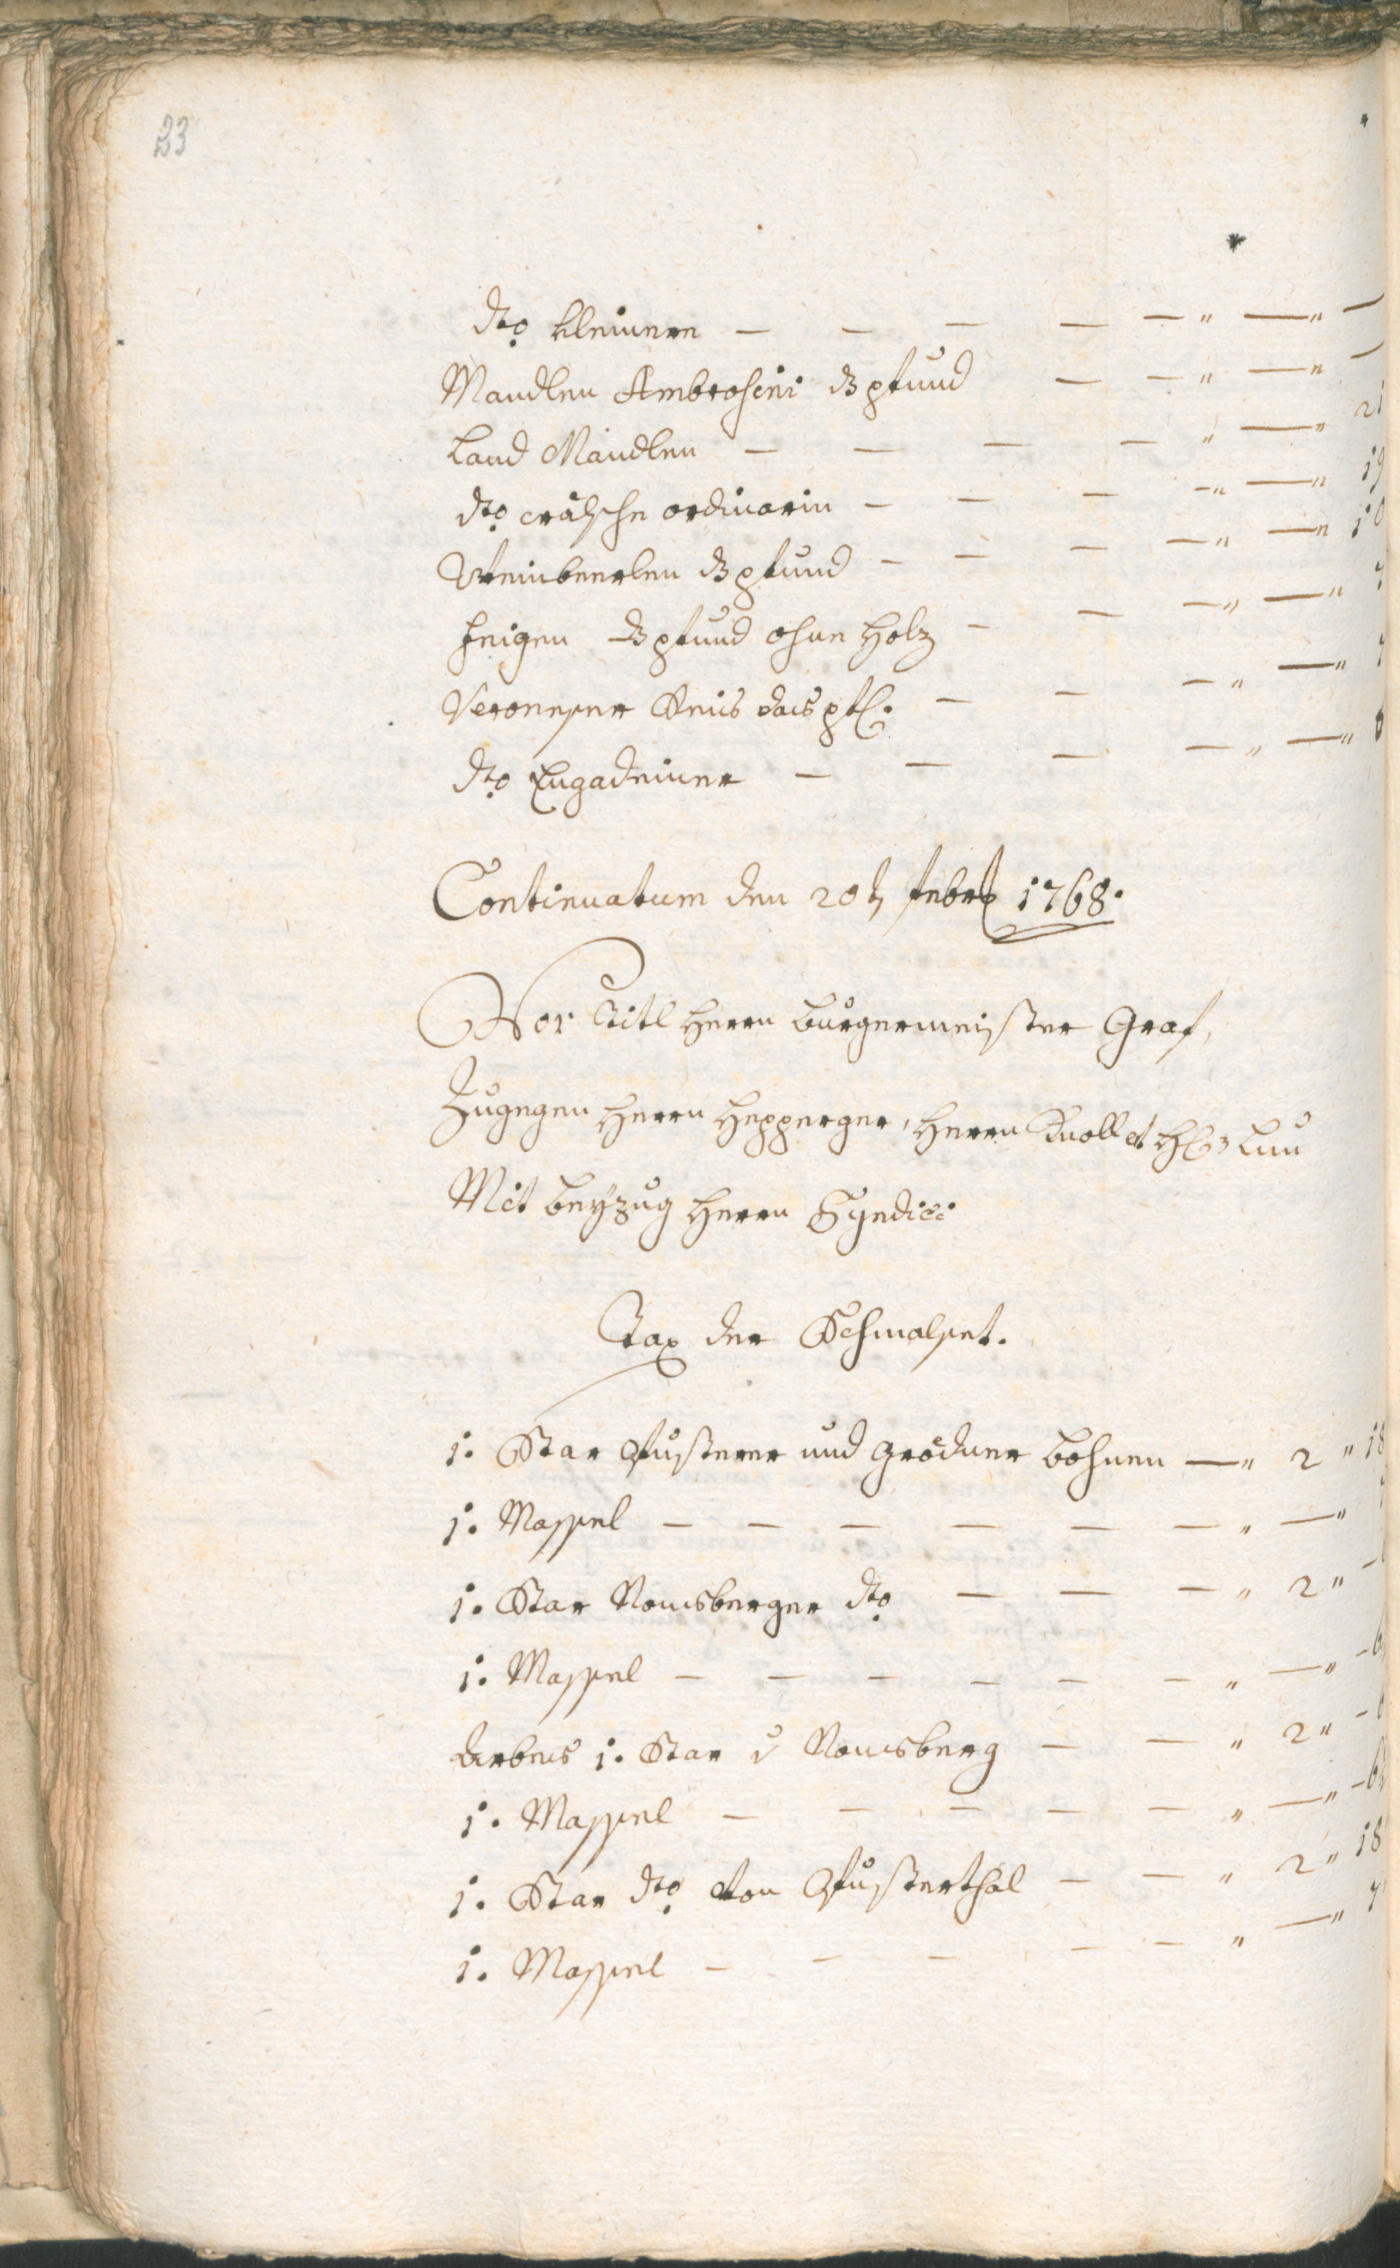 23
dto kleinere — — — — — " — " —
Mandlen Ambrosini d pfund — — " — " —
Land Mandlen — — — — " — " 21
dto wälsche ordinarin — — — — " — " 19
Weinbeerlen d pfund — — — — " — " 10
Feigen d pfund ohne Holz — — — " — " 7
Veroneser Reis das pf. — — — " — " 7
dto Engadeiner — — — — " — " 6
Continuatum den 20t Febr 1768.
Vor Titl Herrn Burgermeister Graf,
Zugegen Herrn Hepperger, Herrn Knoll et H
Mit beyzug Herrn Syndici
Tax der Schmalset.
1. Star Pusterer und Grödner Bohnen — " 2 " 18
1. Massel — — — — — — " — "
1. Star Nonsberger dto — — — " 2 " —
1. Massel — — — — — — " — " 6
Arbeis 1. Star v Nonsberg — — " 2 " —
1. Massel — — — — — " — " 6
1. Star dto von Pusterthal — — " 2 " 18
1. Massel — — — — — " — " 7